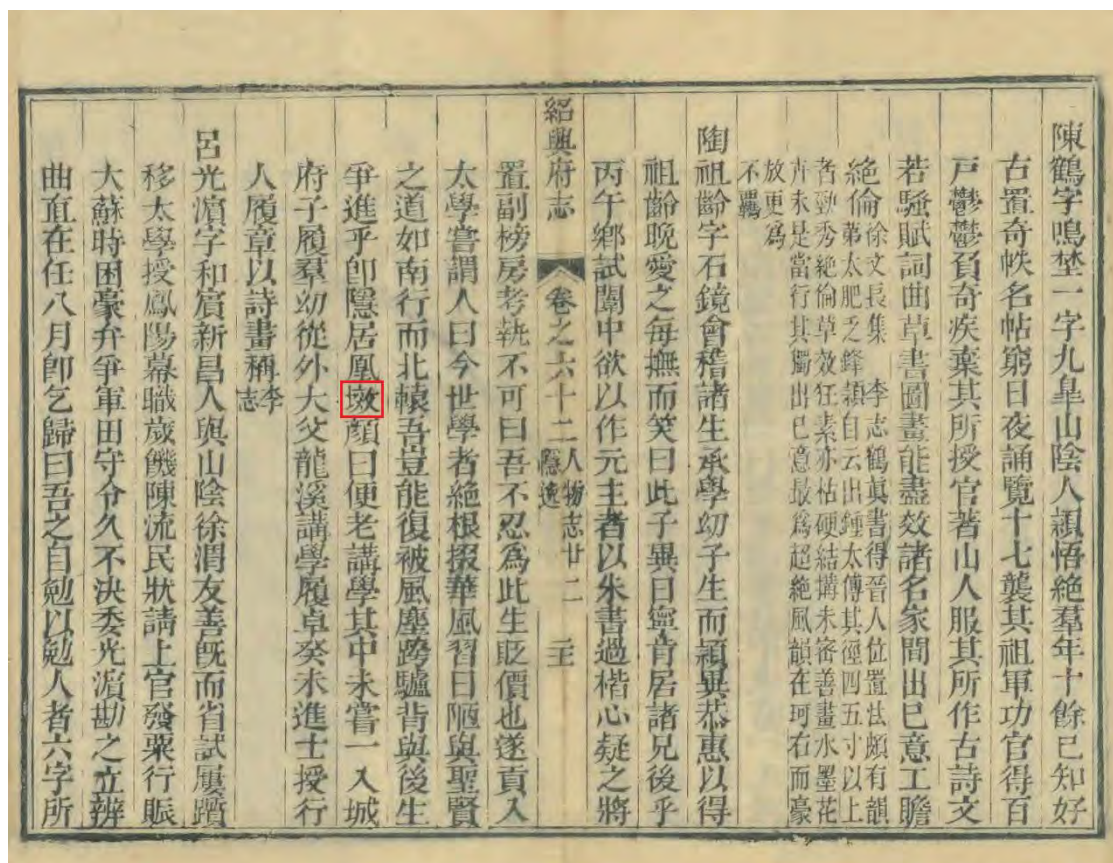 陳鶴字鳴埜一字九臯山陰人穎悟絶羣年十餘已知好
古置奇帙名帖窮日夜誦覽十七襲其祖軍功官得百
戸鬱鬱負奇疾棄其所授官著山人服其所作古詩文
若騷賦詞曲草書圖畫能盡效諸名家間出巳意工贍
絶倫徐文長集　李志鶴眞書得晉人位置怯頗有韻
第太肥乏鋒穎自云出鍾太傅其徑四五寸以上
者勁秀絶倫草效狂素亦枯硬結搆未密善畫水墨花
卉未是當行其獨出巳意最爲超絶風韻在珂右而豪
放更爲
不羈
陶祖齡字石鏡會稽諸生承學幼子生而穎異恭惠以得
祖齡晩愛之每撫而笑曰此子異日寧肯居諸兄後乎
丙午鄉試闈中欲以作元主者以朱書過楷心疑之將
紹興府志　卷之六十二　人物志廿二　隱逸　三
置副榜房考執不可曰吾不忍爲此生貶價也遂貢入
太學嘗謂人曰今世學者絶根掇華風習日陋與聖賢
之道如南行而北轅吾豈能復被風塵跨驢背與後生
爭進乎卽隱居凰墩顔曰便老講學其中未嘗一入城
府子履羣幼從外大父龍溪講學履卓癸未進士授行
人履章以詩畫稱李志
呂光濵字和賔新昌人與山陰徐渭友善旣而省試屢躓
移太學授鳳陽幕職歲饑陳流民狀請上官發粟行賑
大蘇時困豪弁爭軍田守令久不決委光濵勘之立辨
曲直在任八月卽乞歸曰吾之自勉以勉人者六字所